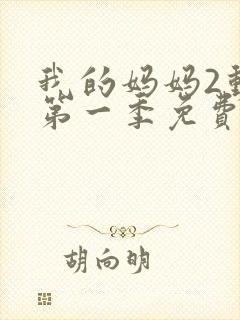 我的妈妈2動
第一季免費
胡向明